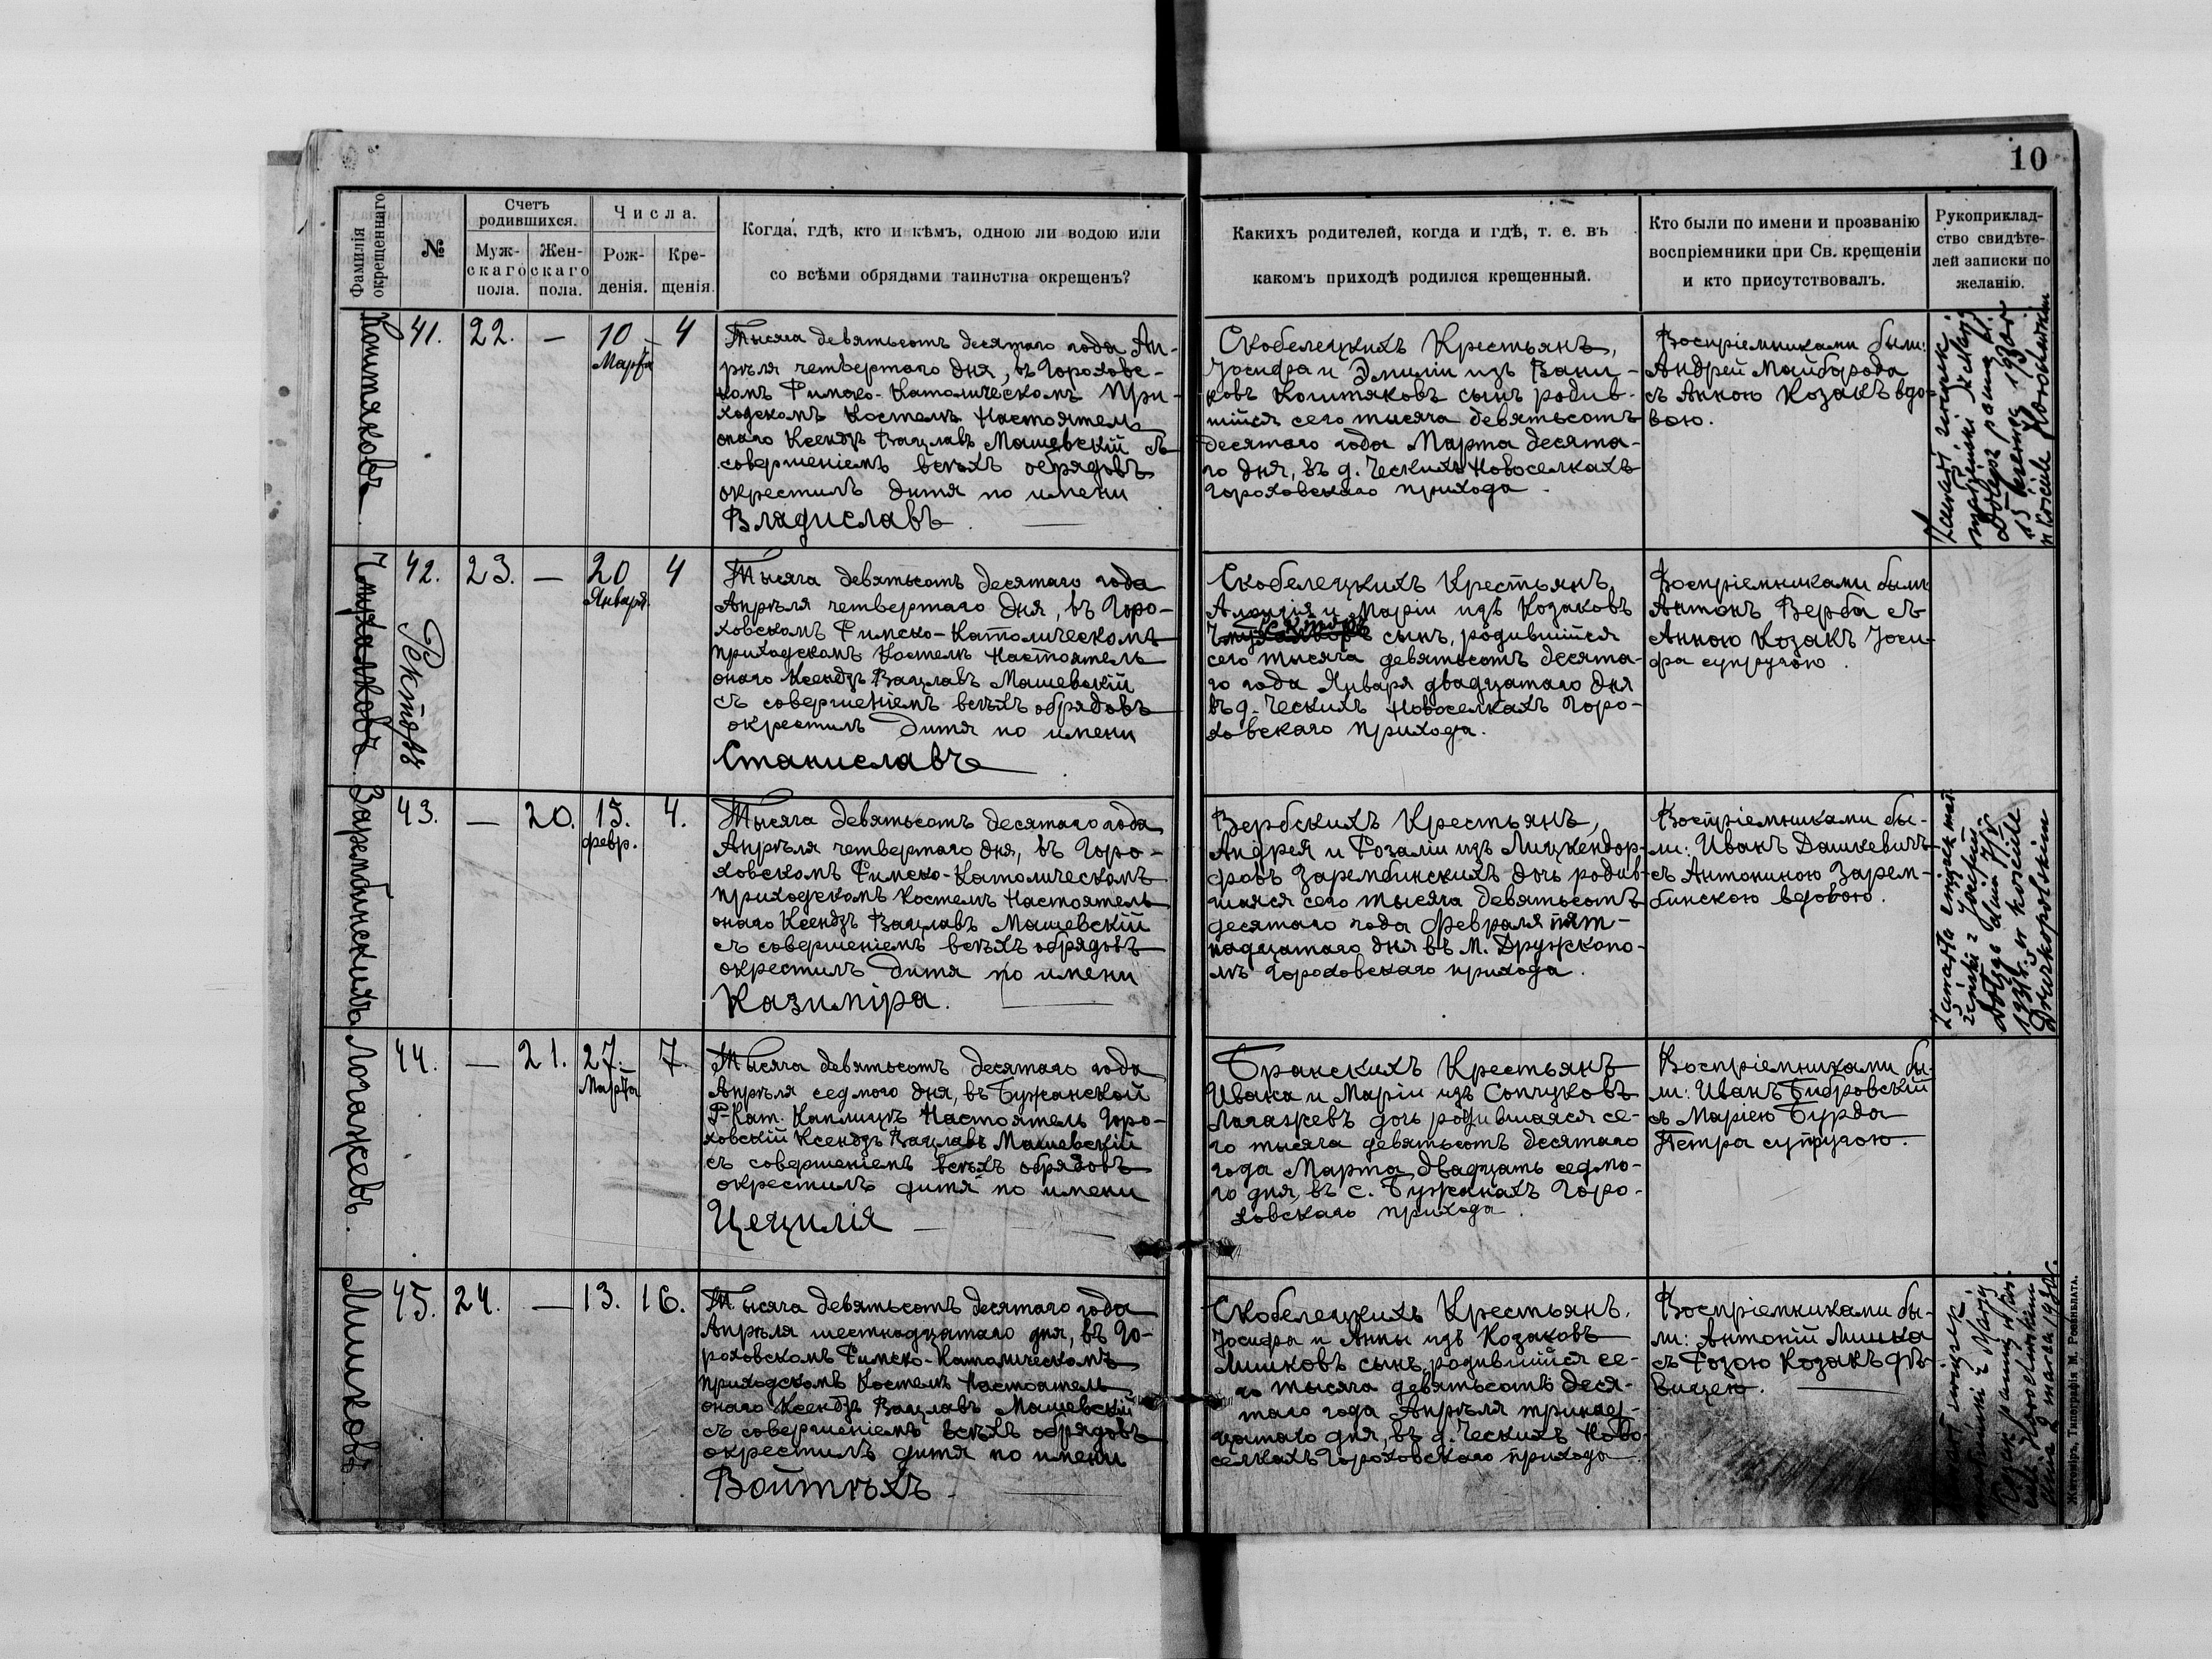 10
Фамилія окрещеннаго
№
Счетъ родившихся.
Муж-скаго пола.
Жен-скаго пола.
Числа.
Рож-денія.
Кре-щенія.
Когда, гдѣ, кто и кѣмъ, одною ли водою или
со всѣми обрядами таинства окрещенъ?
Какихъ родителей, когда и гдѣ, т. е. въ
какомъ приходѣ родился крещенный.
Кто были по имени и прозванію
воспріемники при Св. крещеніи
и кто присутствовалъ.
Рукоприклад-
ство свидѣте-
лей записки по
желанію.
41. 22. — 10 Марта 4
Тысяча девятьсотъ десятаго года Ап-
рѣля четвертаго дня, въ Горохов-
комъ Римско-Католическомъ При-
ходскомъ Костелѣ Настоятель
онаго Ксендзъ Вацлавъ Машевскій съ
совершеніемъ всѣхъ обрядовъ
окрестилъ дитя по имени
Владиславъ.
Скобелецкихъ Крестьянъ,
Іосифа и Эмиліи изъ
сынъ родив-
шійся сего тысяча девятьсотъ
десятаго года Марта десята-
го дня, въ д. Ческихъ Новоселкахъ
Гороховскаго прихода.
Воспріемниками были:
Андрей Майборода
съ Анною Козакъ вдо-
вою.
42. 23. — 20 Января 4
Ректоръ
Тысяча девятьсотъ десятаго года
Апрѣля четвертаго дня, въ Горо-
ховскомъ Римско-Католическомъ
приходскомъ Костелѣ Настоятель
онаго Ксендзъ Вацлавъ Машевскій
съ совершеніемъ всѣхъ обрядовъ
окрестилъ дитя по имени
Станиславъ
Скобелецкихъ Крестьянъ,
Алоизія и Маріи изъ Козаковъ
сынъ, родившійся
сего тысяча девятьсотъ десята-
го года Января двадцатаго дня
въ д. Ческихъ Новоселкахъ Горо-
ховскаго прихода.
Воспріемниками были
Антонъ Верба съ
Анною Козакъ Іоси-
фа супругою.
Зарембинскихъ.
43. — 20. 15. февр. 4.
Тысяча девятьсотъ десятаго года
Апрѣля четвертаго дня, въ Горо-
ховскомъ Римско-Католическомъ
приходскомъ Костелѣ Настоятель
онаго Ксендзъ Вацлавъ Машевскій
съ совершеніемъ всѣхъ обрядовъ
окрестилъ дитя по имени
Казиміра.
Вербскихъ Крестьянъ,
Андрея и Розаліи изъ Лицкендор-
фовъ Зарембинскихъ дочь родив-
шаяся сего тысяча девятьсотъ
десятаго года Февраля пят-
надцатаго дня въ м. Дружкопо-
лѣ Гороховскаго прихода.
Воспріемниками бы-
ли: Иванъ Дашкевичъ
съ Антониною Зарем-
бинскою вдовою.
Логажевъ.
44. — 21. 27. Марта 7.
Тысяча девятьсотъ десятаго года
Апрѣля седмого дня, въ Бужанской
Р-Кат. Каплицѣ Настоятель Горо-
ховскій Ксендзъ Вацлавъ Машевскій
съ совершеніемъ всѣхъ обрядовъ
окрестилъ дитя по имени
Цецилія
Бранскихъ Крестьянъ
Ивана и Маріи изъ
дочь родившаяся се-
го тысяча девятьсотъ десятаго
года Марта двадцать седмо-
го дня, въ с. Бужанахъ Горо-
ховскаго прихода.
Воспріемниками бы-
ли: Иванъ Бибровскій
съ Маріею Бурда
Петра супругою.
Мишковъ
45. 24. — 13. 16.
Тысяча девятьсотъ десятаго года
Апрѣля шестнадцатаго дня, въ Го-
роховскомъ Римско-Католическомъ
приходскомъ Костелѣ Настоятель
онаго Ксендзъ Вацлавъ Машевскій
съ совершеніемъ всѣхъ обрядовъ
окрестилъ дитя по имени
Войтѣхъ.
Скобелецкихъ Крестьянъ.
Іосифа и Анны изъ Козаковъ
Мишковъ сынъ, родившійся се-
го тысяча девятьсотъ деся-
таго года Апрѣля тринад-
цатаго дня, въ д. Ческихъ Ново-
селкахъ Гороховскаго прихода.
Воспріемниками бы-
ли: Антоній Мишка
съ Розою Козакъ дѣ-
вицею.
Житоміръ, Типографія М.